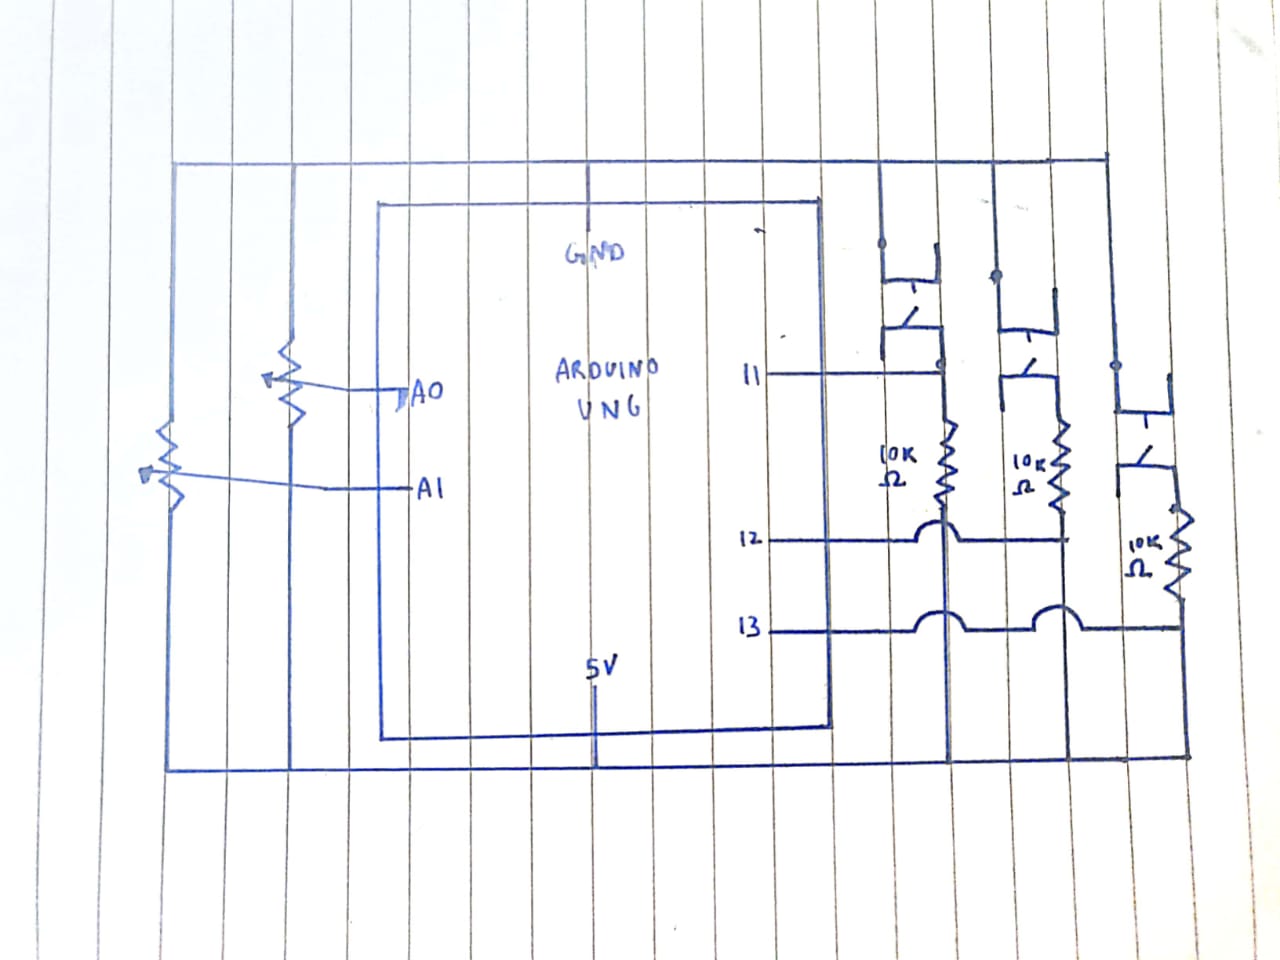 GND
ARDUINO
UNO
A0
A1
11
12
13
5V
10K
Ω
10K
Ω
10K
Ω